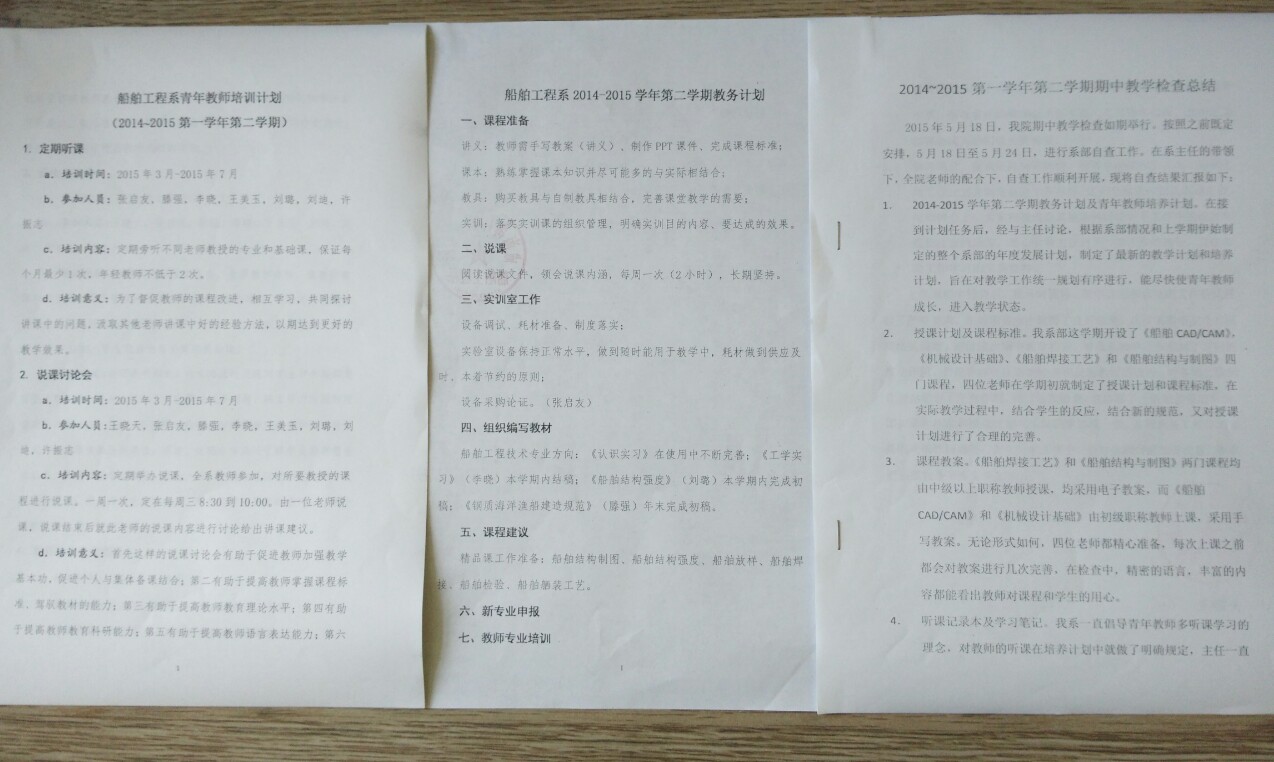 船舶工程系青年教师培训计划
（2014~2015 第一学年第二学期）
1. 定期听课
a. 培训时间：2015 年 3 月-2015 年 7 月
b. 参加人员：张启友，滕强，李晓，王美玉，刘璐，刘迪，许
振志
c. 培训内容：定期旁听不同老师教授的专业和基础课，保证每
个月最少 1 次，年轻教师不低于 2 次。
d. 培训意义：为了督促教师的课程改进，相互学习，共同探讨
讲课中的问题，汲取其他老师讲课中好的经验方法，以期达到更好的
教学效果。
2. 说课讨论会
a. 培训时间：2015 年 3 月-2015 年 7 月
b. 参加人员：王晓天，张启友，滕强，李晓，王美玉，刘璐，刘
迪，许振志
c. 培训内容：定期举办说课，全系教师参加，对所要教授的课
程进行说课。一周一次，定在每周三 8:30 到 10:00，由一位老师说
课，说课结束后就此老师的说课内容进行讨论给出讲课建议。
d. 培训意义：首先这样的说课讨论会有助于促进教师加强教学
基本功，促进个人与集体备课结合；第二有助于提高教师掌握课程标
准、驾驭教材的能力；第三有助于提高教师教育理论水平；第四有助
于提高教师教育科研能力；第五有助于提高教师语言表达能力；第六
1
船舶工程系 2014-2015 学年第二学期教务计划
一、课程准备
讲义：教师需手写教案（讲义）、制作 PPT 课件、完成课程标准；
课本：熟练掌握课本知识并尽可能多的与实际相结合；
教具：购买教具与自制教具相结合，完善课堂教学的需要；
实训：落实实训课的组织管理，明确实训目的内容、要达成的效果。
二、说课
阅读说课文件，领会说课内涵，每周一次（2 小时），长期坚持。
三、实训室工作
设备调试、耗材准备、制度落实；
实验室设备保持正常水平，做到随时能用于教学中，耗材做到供应及
时，本着节约的原则；
设备采购论证。（张启友）
四、组织编写教材
船舶工程技术专业方向：《认识实习》在使用中不断完善；《工学实
习》（李晓）本学期内结稿；《船舶结构强度》（刘璐）本学期内完成初
稿；《钢质海洋渔船建造规范》（滕强）年末完成初稿。
五、课程建议
精品课工作准备：船舶结构制图、船舶结构强度、船舶放样、船舶焊
接、船舶检验、船舶舾装工艺。
六、新专业申报
七、教师专业培训
1
2014~2015 第一学年第二学期期中教学检查总结
2015 年 5 月 18 日，我院期中教学检查如期举行。按照之前既定
安排，5 月 18 日至 5 月 24 日，进行系部自查工作。在系主任的带领
下，全院老师的配合下，自查工作顺利开展，现将自查结果汇报如下：
1. 2014-2015 学年第二学期教务计划及青年教师培养计划。在接
到计划任务后，经与主任讨论，根据系部情况和上学期伊始制
定的整个系部的年度发展计划，制定了最新的教学计划和培养
计划，旨在对教学工作统一规划有序进行，能尽快使青年教师
成长，进入教学状态。
2. 授课计划及课程标准。我系部这学期开设了《船舶 CAD/CAM》，
《机械设计基础》、《船舶焊接工艺》和《船舶结构与制图》四
门课程，四位老师在学期初就制定了授课计划和课程标准。在
实际教学过程中，结合学生的反应，结合新的规范，又对授课
计划进行了合理的完善。
3. 课程教案。《船舶焊接工艺》和《船舶结构与制图》两门课程均
由中级以上职称教师授课，均采用电子教案，而《船舶
CAD/CAM》和《机械设计基础》由初级职称教师上课，采用手
写教案。无论形式如何，四位老师都精心准备，每次上课之前
都会对教案进行几次完善，在检查中，精密的语言，丰富的内
容都能看出教师对课程和学生的用心。
4. 听课记录本及学习笔记。我系一直倡导青年教师多听课学习的
理念，对教师的听课在培养计划中就做了明确规定，主任一直